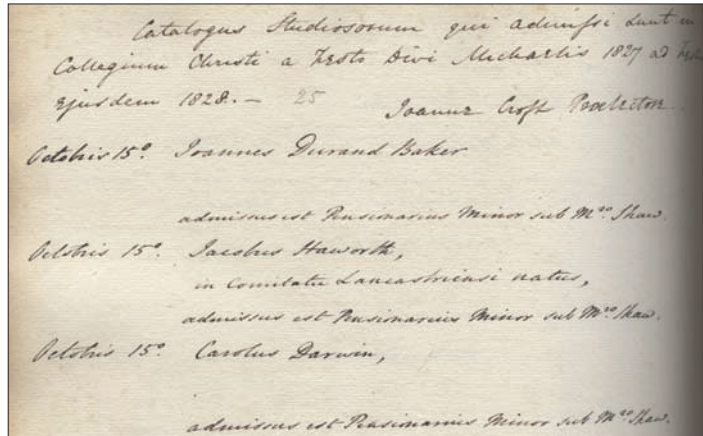 Catalogus Studiosorum qui admissi sunt in
Collegium Christi a Festo Divi Michaelis 1827 ad Festum
ejusdem 1828. — 25
Joanne Croft Praelectore.
Octobris 15º. Joannes Durand Baker
admissus est Pensionarius Minor sub Mro Shaw.
Octobris 15º. Jacobus Haworth,
in Comitatu Lancastriensi natus,
admissus est Pensionarius Minor sub Mro Shaw.
Octobris 15º. Carolus Darwin,
admissus est Pensionarius Minor sub Mro Shaw.